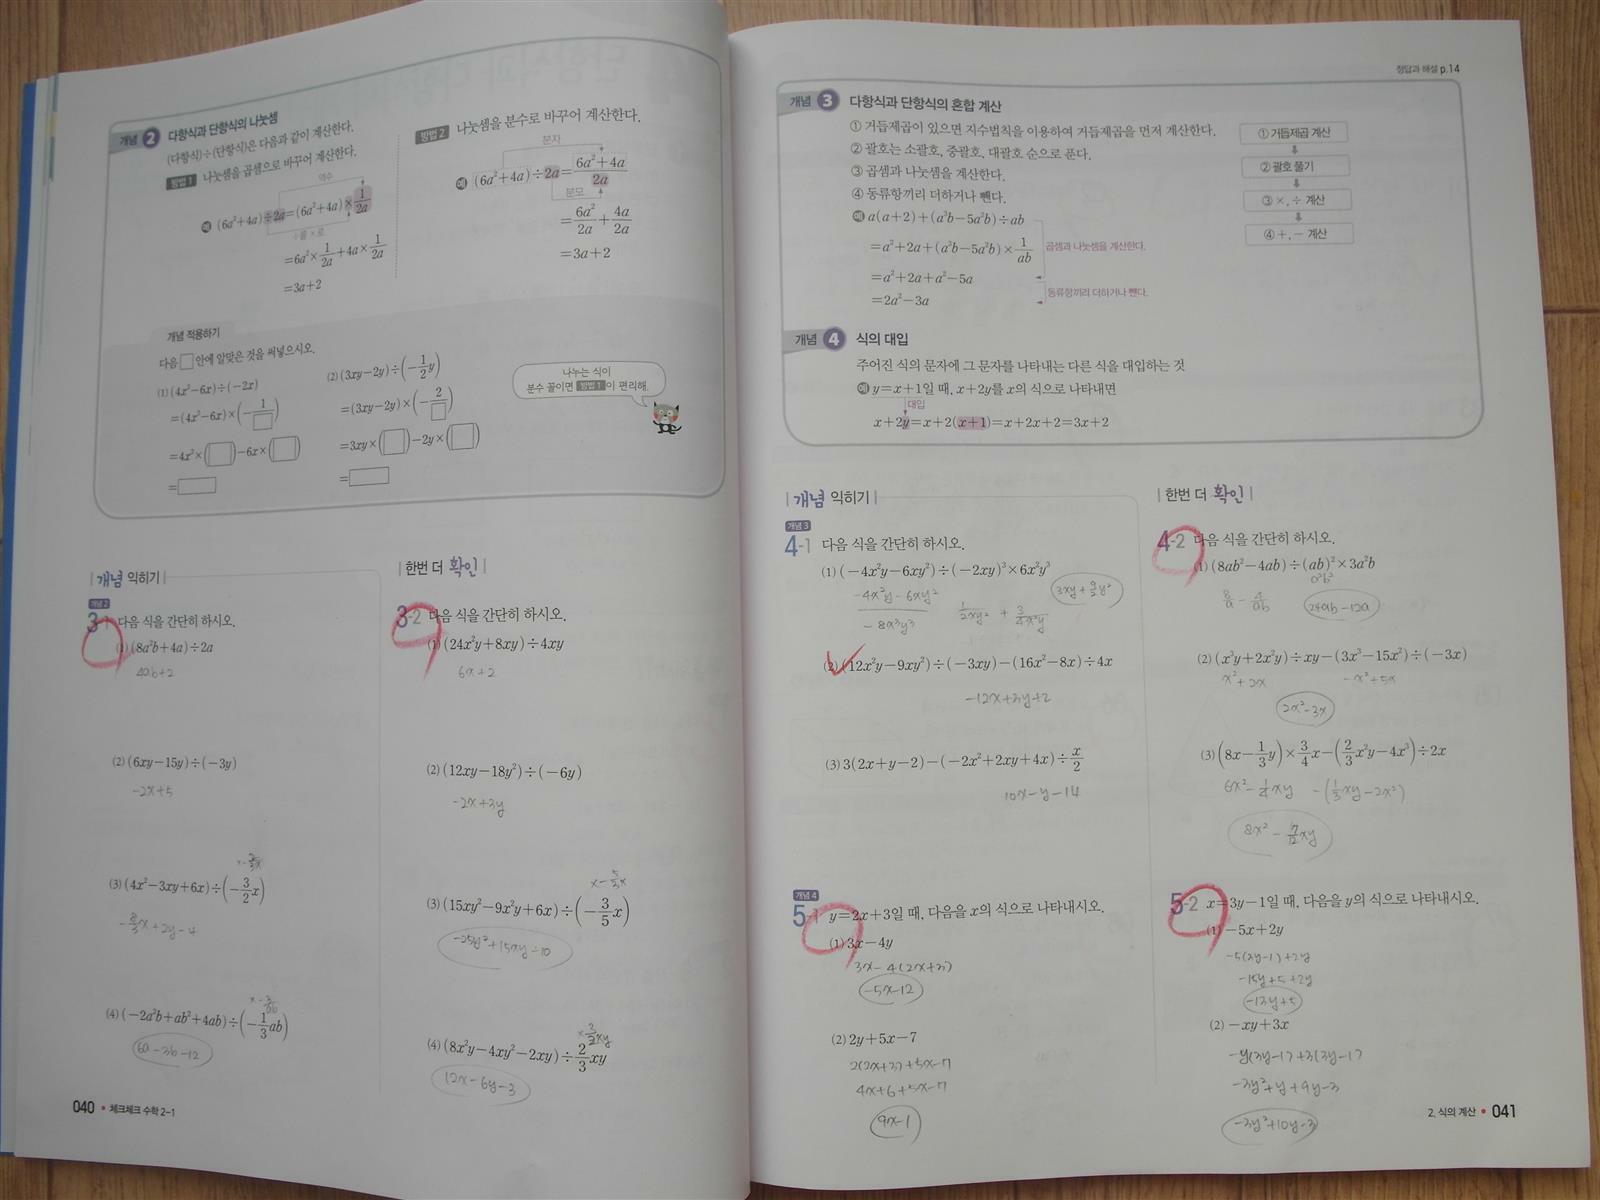 개념 2 다항식과 단항식의 나눗셈
(다항식)÷(단항식)은 다음과 같이 계산한다.
방법 1 나눗셈을 곱셈으로 바꾸어 계산한다.
역수
예 (6a²+4a)÷2a=(6a²+4a)×1/2a
÷를 ×로
=6a²×1/2a+4a×1/2a
=3a+2
방법 2 나눗셈을 분수로 바꾸어 계산한다.
분자
예 (6a²+4a)÷2a=(6a²+4a)/2a
분모
=6a²/2a+4a/2a
=3a+2
개념 적용하기
다음 □ 안에 알맞은 것을 써넣으시오.
(1) (4x²-6x)÷(-2x)
=(4x²-6x)×(-1/□)
=4x²×(□)-6x×(□)
=□
(2) (3xy-2y)÷(-1/2y)
=(3xy-2y)×(-2/□)
=3xy×(□)-2y×(□)
=□
나누는 식이
분수 꼴이면 방법 1 이 편리해.
|개념 익히기|
개념 2
3-1 다음 식을 간단히 하시오.
(1) (8a²b+4a)÷2a
4ab+2
(2) (6xy-15y)÷(-3y)
-2x+5
(3) (4x²-3xy+6x)÷(-3/2x)
-8/3x+2y-4
(4) (-2a²b+ab²+4ab)÷(-1/3ab)
×-3/ab
6a-3b-12
|한번 더 확인|
3-2 다음 식을 간단히 하시오.
(1) (24x²y+8xy)÷4xy
6x+2
(2) (12xy-18y²)÷(-6y)
-2x+3y
(3) (15xy²-9x²y+6x)÷(-3/5x)
×-5/3x
-25y²+15xy-10
(4) (8x²y-4xy²-2xy)÷2/3xy
12x-6y-3
040 • 체크체크 수학 2-1
정답과 해설 p.14
개념 3 다항식과 단항식의 혼합 계산
① 거듭제곱이 있으면 지수법칙을 이용하여 거듭제곱을 먼저 계산한다.
② 괄호는 소괄호, 중괄호, 대괄호 순으로 푼다.
③ 곱셈과 나눗셈을 계산한다.
④ 동류항끼리 더하거나 뺀다.
예 a(a+2)+(a³b-5a²b)÷ab
=a²+2a+(a³b-5a²b)×1/ab
곱셈과 나눗셈을 계산한다.
=a²+2a+a²-5a
동류항끼리 더하거나 뺀다.
=2a²-3a
① 거듭제곱 계산
② 괄호 풀기
③ ×, ÷ 계산
④ +, - 계산
개념 4 식의 대입
주어진 식의 문자에 그 문자를 나타내는 다른 식을 대입하는 것
예 y=x+1일 때, x+2y를 x의 식으로 나타내면
대입
x+2y=x+2(x+1)=x+2x+2=3x+2
|개념 익히기|
개념 3
4-1 다음 식을 간단히 하시오.
(1) (-4x²y-6xy²)÷(-2xy)³×6x²y³
-4x²y-6xy²
-8x³y³
(2) (12x²y-9xy²)÷(-3xy)-(16x²-8x)÷4x
-12x+3y+2
(3) 3(2x+y-2)-(-2x²+2xy+4x)÷x/2
10x-y-14
개념 4
5-1 y=2x+3일 때, 다음을 x의 식으로 나타내시오.
(1) 3x-4y
3x-4(2x+3)
-5x-12
(2) 2y+5x-7
2(2x+3)+5x-7
4x+6+5x-7
9x-1
|한번 더 확인|
4-2 다음 식을 간단히 하시오.
(1) (8ab²-4ab)÷(ab)²×3a²b
a²b²
8/a - 4/ab
24ab-12a
(2) (x³y+2x²y)÷xy-(3x³-15x²)÷(-3x)
x²+2x -x²+5x
2x²-3x
(3) (8x-1/3y)×3/4x-(2/3x²y-4x³)÷2x
6x²-1/4xy -(1/3xy-2x²)
8x²-7/12xy
5-2 x=3y-1일 때, 다음을 y의 식으로 나타내시오.
(1) -5x+2y
-5(3y-1)+2y
-15y+5+2y
-13y+5
(2) -xy+3x
-y(3y-1)+3(3y-1)
-3y²+y+9y-3
-3y²+10y-3
2. 식의 계산 • 041